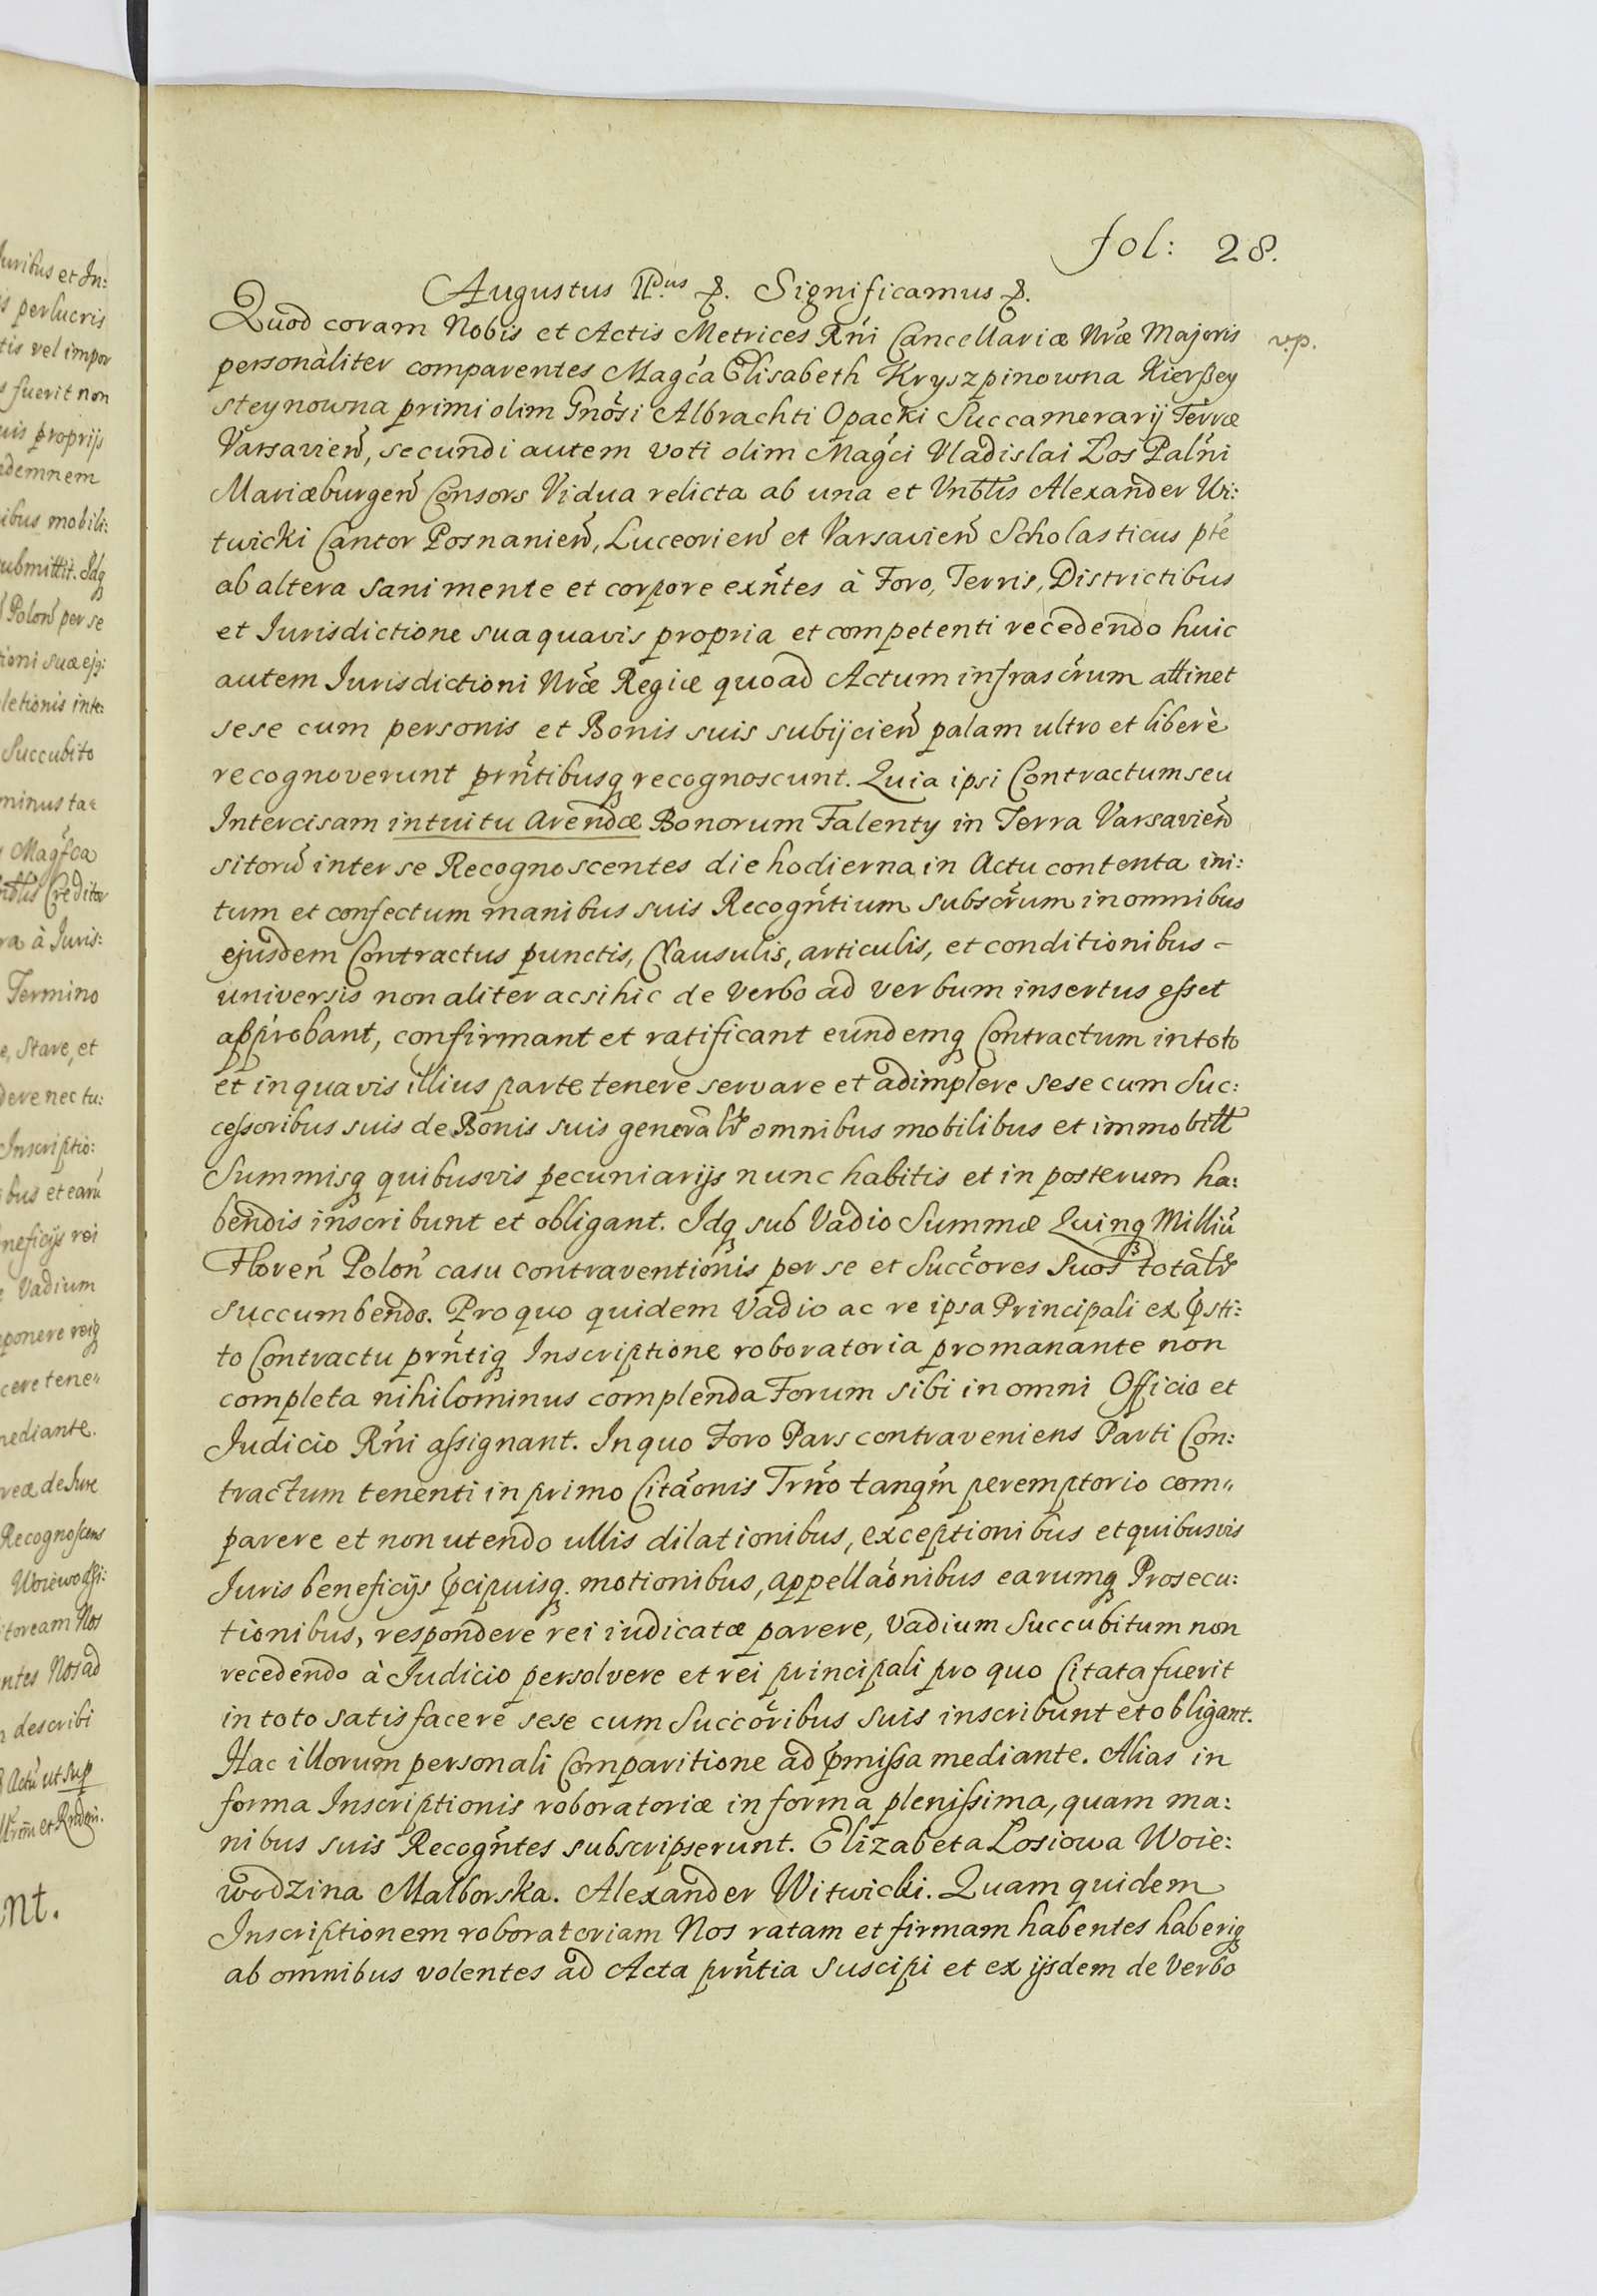 fol: 28.
Augustus IIdus &. Significamus &.
Quod coram Nobis et Actis Metrices Rñi Cancellariæ Nræ Majoris
v.p.
personaliter comparentes Magca Elisabeth Kryszpinowna Kierßey
steynowna primi olim Gnosi Albrachti Opacki Succamerarij Terræ
Varsavień, secundi autem voti olim Magci Vladislai Los Palni
Mariæburgeń Consors Vidua relicta ab una et Vnblis Alexander Wi:
twicki Cantor Posnanień, Luceorień et Varsavień Scholasticus pte
ab altera sani mente et corpore exñtes à Foro, Terris, Districtibus
et Iurisdictione sua quavis propria et competenti recedendo huic
autem Iurisdictioni Nræ Regiæ quoad Actum infrascrum attinet
sese cum personis et Bonis suis subijcień palam ultro et liberè
recognoverunt prñtibusq recognoscunt. Quia ipsi Contractum seu
Intercisam intuitu Arendæ Bonorum Falenty in Terra Varsavień
sitorũ inter se Recognoscentes die hodierna in Actu contenta ini:
tum et confectum manibus suis Recogñtium subscrum in omnibus
ejusdem Contractus punctis, Clausulis, articulis, et conditionibus -
universis non aliter ac si hic de verbo ad verbum insertus esset
approbant, confirmant et ratificant eundemq Contractum in toto
et in quavis illius parte tenere servare et adimplere sese cum Suc:
cessoribus suis de Bonis suis generalr omnibus mobilibus et immobill
Summisq quibusvis pecuniarijs nunc habitis et in posterum ha:
bendis inscribunt et obligant. Idq sub Vadio Summæ Quinq Milliũ
Floreñ Poloñ casu contraventionis per se et Succores Suos totalr
succumbendo. Pro quo quidem Vadio ac re ipsa Principali ex psti:
to Contractu prñtiq Inscriptione roboratoria promanante non
completa nihilominus complenda Forum sibi in omni Officio et
Judicio Rñi assignant. In quo Foro Pars contraveniens Parti Con:
tractum tenenti in primo Citaonis Trño tanqm peremptorio com"
parere et non utendo ullis dilationibus, exceptionibus et quibusvis
Iuris beneficijs pcipuisq. motionibus, appellaonibus earumq Prosecu:
tionibus, respondere rei iudicatæ parere, Vadium Succubitum non
recedendo à Iudicio persolvere et rei principali pro quo Citata fuerit
in toto satisfacere sese cum Succoribus suis inscribunt et obligant.
Hac illorum personali Comparitione ad pmissa mediante. Alias in
forma Inscriptionis roboratoriæ in forma plenissima, quam ma:
nibus suis Recogñtes subscripserunt. Elizabeta Losiowa Woie:
wodzina Malborska. Alexander Witwicki. Quam quidem
Inscriptionem roboratoriam Nos ratam et firmam habentes haberiq
ab omnibus volentes ad Acta prñtia suscipi et ex ijsdem de verbo